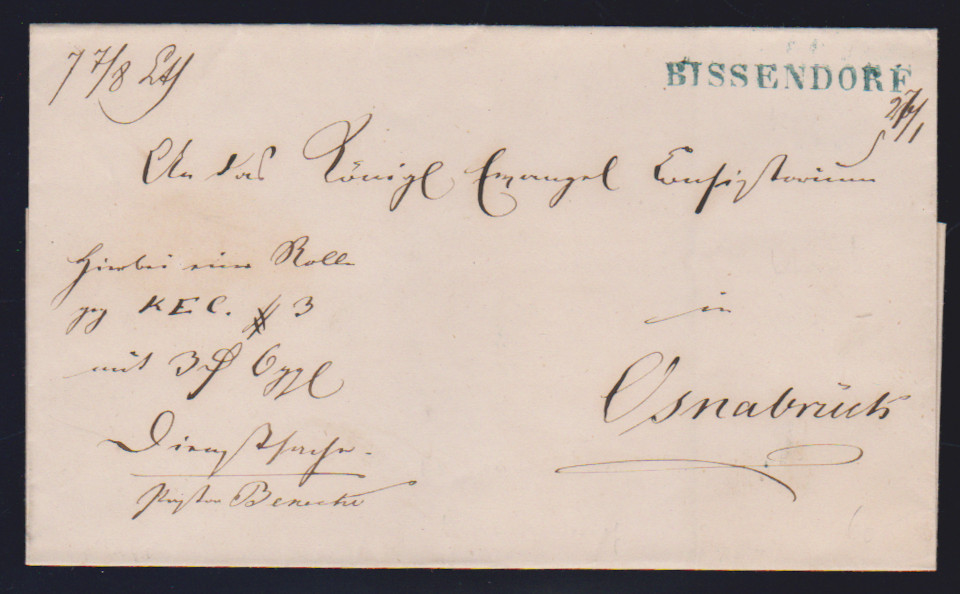 7 7/8 Lth
BISSENDORF
27/1
An das Königl Evangel Consistorium
Hierbei eine Rolle
gez K E C. # 3
mit 3 ₰ 6 ggl
in
Osnabrück
Dienstsache.
Pastor Benecke